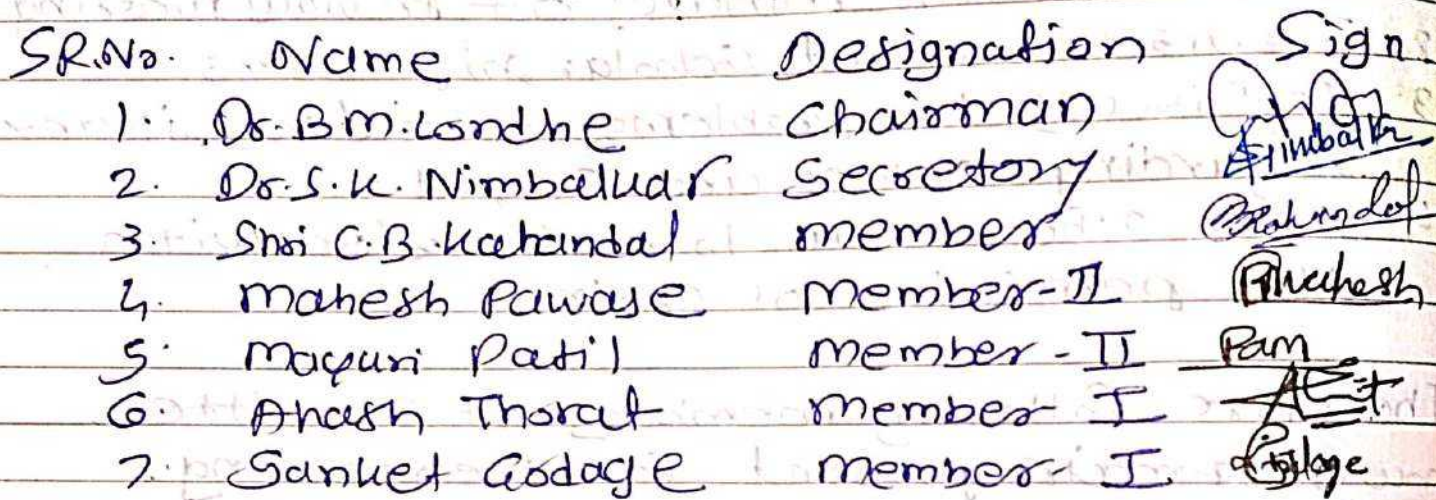 SR.No. Name Designation Sign
1. Dr. B.M. Londhe Chairman
2. Dr. S.K. Nimbalkar Secretory
3. Shri C.B. Kahandal member
4. Mahesh Pawase member-II
5. Mayuri Patil member-II Pam
6. Akash Thorat member-I
7. Sanket Godage member-I